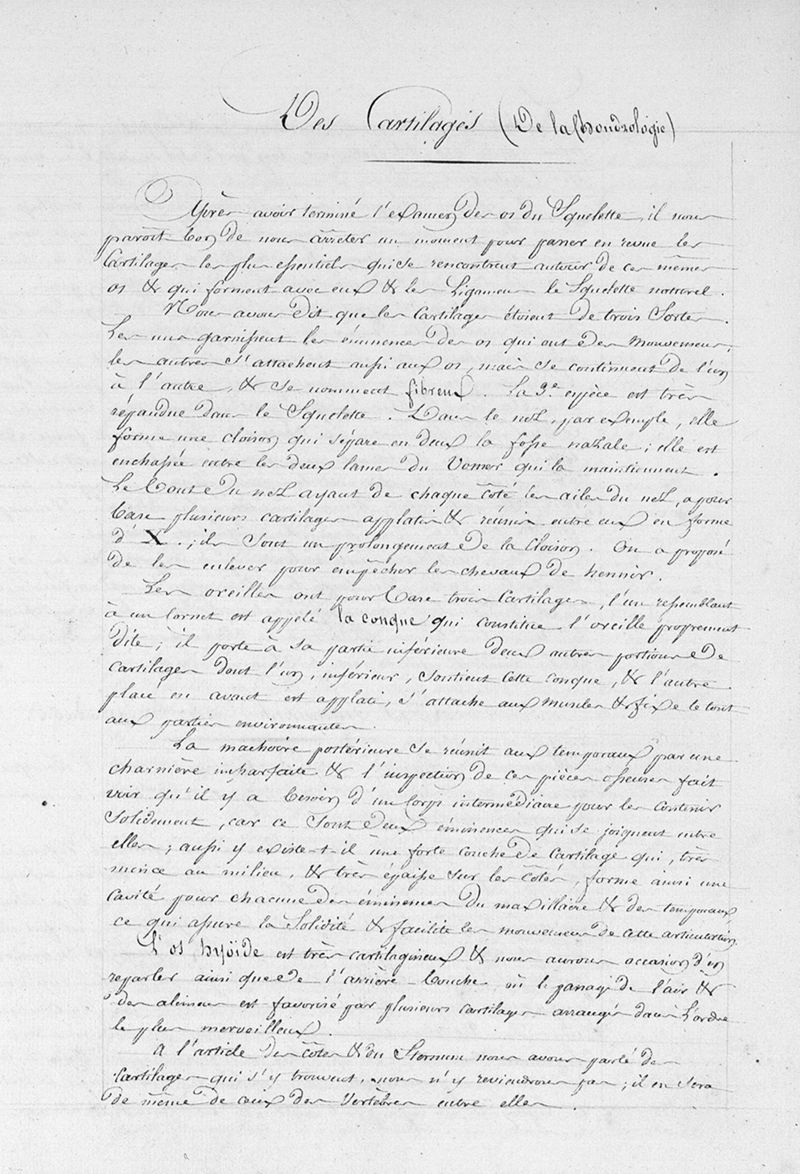 Des Cartilages (De la Chondrologie)
Après avoir terminé l'examen des os du Squelette, il nous
paroit bon de nous arrêter un moment pour passer en revue les
Cartilages les plus essentiels qui se rencontrent autour de ces mêmes
os & qui forment avec eux & les Ligamens le Squelette naturel.
Nous avons dit que les Cartilages étoient de trois Sortes.
Les uns garnissent les éminences des os qui ont des mouvemens,
les autres s'attachent aussi aux os, mais se continuent de l'un
à l'autre, & se nomment fibreux. La 3e. espèce est très
répandue dans le Squelette. Dans le nez, par exemple, elle
forme une cloison qui sépare en deux la fosse nazale; elle est
enchassée entre les deux lames du Vomer qui la maintiennent.
Le bout du nez ayant de chaque côté les ailes du nez, a pour
base plusieurs cartilages applatis & réunis entre eux en forme
d'X.; ils sont un prolongement de la cloison. On a proposé
de les enlever pour empêcher les chevaux de hennir.
Les oreilles ont pour base trois Cartilages, l'un ressemblant
à un Cornet est appelé la conque qui constitue l'oreille proprement
dite; il porte à sa partie inférieure deux autres portions de
cartilages dont l'un, inférieur, soutient cette conque, & l'autre
placé en avant est applati, s'attache aux muscles & fixe le tout
aux parties environnantes.
La machoire postérieure se réunit aux temporaux par une
charnière imparfaite & l'inspection de ces pièces osseuses fait
voir qu'il y a besoin d'un corps intermédiaire pour les contenir
Solidement, car ce sont deux éminences qui se joignent entre
elles; aussi y existe-t-il une forte couche de Cartilage qui, très
mince au milieu, & très épaisse sur les côtés, forme ainsi une
cavité pour chacune des éminences du maxillaire & des temporaux
ce qui assure la Solidité & facilite les mouvemens de cette articulation.
L'os hyoïde est très cartilagineux & nous aurons occasion d'en
reparler ainsi que de l'arrière-bouche, où le passage de l'air &
des alimens est favorisé par plusieurs cartilages arrangés dans l'ordre
le plus merveilleux.
A l'article des côtes & du Sternum nous avons parlé des
cartilages qui s'y trouvent, nous n'y reviendrons pas; il en sera
de même de ceux des Vertèbres entre elles.